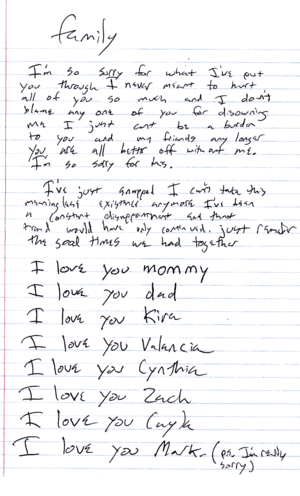 family
I'm so sorry for what I've put
you through I never meant to hurt
all of you so much and I don't
blame any one of you for disowning
me I just cant be a burden
to you and my friends any longer
You are all better off without me.
I'm so sorry for this.
I've just snapped I can't take this
meaningless existence anymore I've been
a constant disappointment and that
trend would have only continued. just remember
the good times we had together
I love you mommy
I love you dad
I love you Kira
I love you Valancia
I love you Cynthia
I love you Zach
I love you Cayla
I love you Mark (P.S. I'm really
sorry)